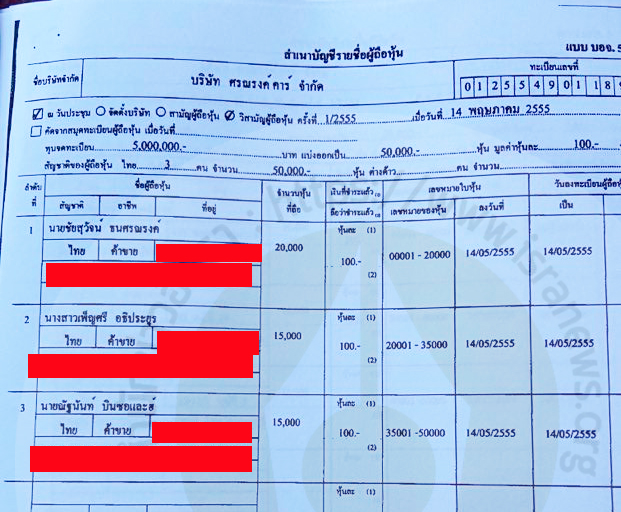 สำเนาบัญชีรายชื่อผู้ถือหุ้น
แบบ บอจ. 5
ทะเบียนเลขที่
ชื่อบริษัทจำกัด บริษัท ศรณรงค์คาร์ จำกัด
0 1 2 5 5 4 9 0 1 1 8
ณ วันประชุม จัดตั้งบริษัท สามัญผู้ถือหุ้น วิสามัญผู้ถือหุ้น ครั้งที่ 1/2555 เมื่อวันที่ 14 พฤษภาคม 2555
คัดจากสมุดทะเบียนผู้ถือหุ้น เมื่อวันที่
ทุนจดทะเบียน 5,000,000.- บาท แบ่งออกเป็น 50,000.- หุ้น มูลค่าหุ้นละ 100.-
สัญชาติของผู้ถือหุ้น ไทย 3 คน จำนวน 50,000.- หุ้น ต่างด้าว คน จำนวน
ลำดับที่ ชื่อผู้ถือหุ้น จำนวนหุ้นที่ถือ เงินที่ชำระแล้ว (1) เลขหมายใบหุ้น วันลงทะเบียนผู้ถือหุ้
สัญชาติ อาชีพ ที่อยู่ ถือว่าชำระแล้ว (2) เลขหมายของหุ้น ลงวันที่ เป็น
1 นายชัยสุวัจน์ ธนศรณรงค์ 20,000 หุ้นละ (1)
ไทย ค้าขาย 100.- 00001 - 20000 14/05/2555 14/05/2555
(2)
2 นางสาวเพ็ญศรี อธิประยูร 15,000 หุ้นละ (1)
ไทย ค้าขาย 100.- 20001 - 35000 14/05/2555 14/05/2555
(2)
3 นายณัฐนันท์ บินซอและฮ์ 15,000 หุ้นละ (1)
ไทย ค้าขาย 100.- 35001 -50000 14/05/2555 14/05/2555
(2)
หุ้นละ (1)
www.isranews.org